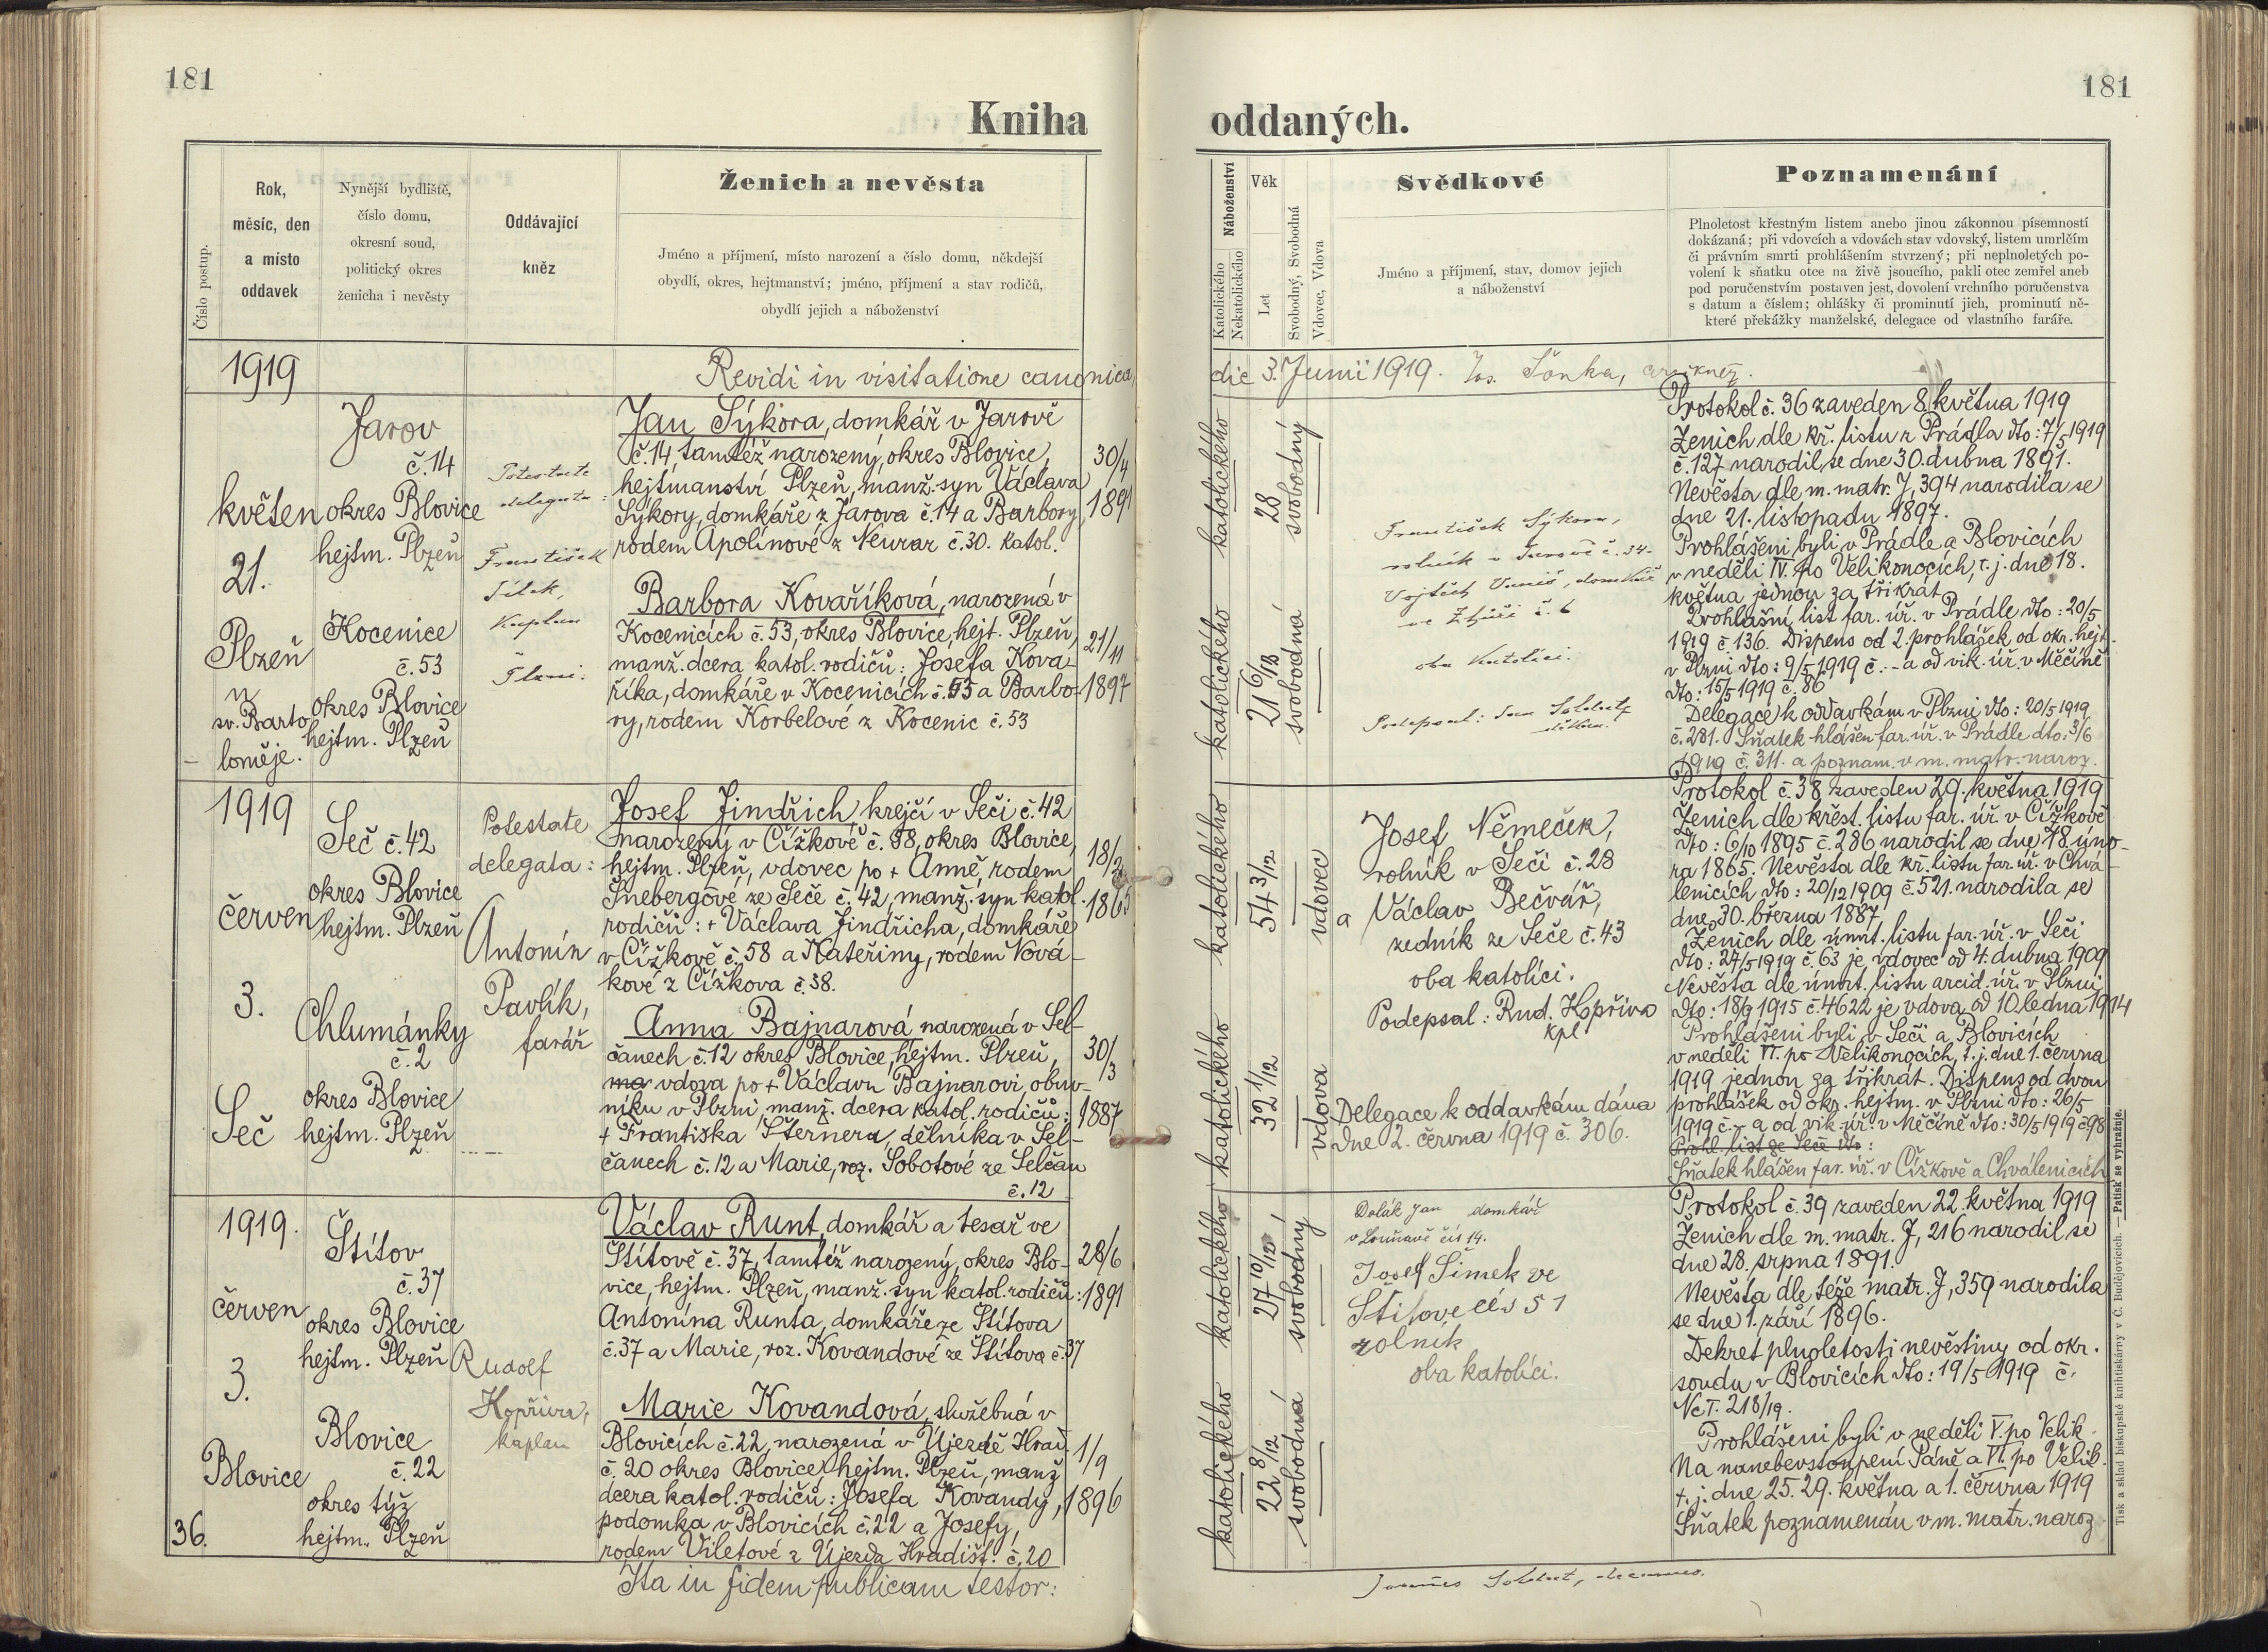 181
181
Kniha oddaných.
Číslo postup.
Rok,
měsíc, den
a místo
oddavek
Nynější bydliště,
číslo domu,
okresní soud,
politický okres
ženicha i nevěsty
Oddávající
kněz
Ženich a nevěsta
Jméno a příjmení, místo narození a číslo domu, někdejší
obydlí, okres, hejtmanství; jméno, příjmení a stav rodičů,
obydlí jejich a náboženství
Náboženství
Katolického
Nekatolického
Věk
Let
Svobodný, Svobodná
Vdovec, Vdova
Svědkové
Jméno a příjmení, stav, domov jejich
a náboženství
Poznamenání
Plnoletost křestným listem anebo jinou zákonnou písemností
dokázaná; při vdovcích a vdovách stav vdovský, listem umrlčím
či právním smrti prohlášením stvrzený; při neplnoletých po-
volení k sňatku otce na živě jsoucího, pakli otec zemřel aneb
pod poručenstvím postaven jest, dovolení vrchního poručenstva
s datum a číslem; ohlášky či prominutí jich, prominutí ně-
které překážky manželské, delegace od vlastního faráře.
Revidi in visitatione canonica
die 3. Junii 1919. Jos. Šonka,
1919
květen
21.
Plzeň
u
sv. Barto
loměje.
Jarov
č. 14
okres Blovice
hejtm. Plzeň
Kocenice
č. 53
okres Blovice
hejtm. Plzeň
Potestate
delegata:
František
kaplan
Plzni.
Jan Sýkora, domkář v Jarově
č. 14, tamtéž narozený, okres Blovice,
hejtmanství Plzeň, manž. syn Václava
Sýkory, domkáře z Jarova č. 14 a Barbory,
rodem Apolínové z Neuraz č. 30. katol.
30/4
1891
Barbora Kovaříková, narozená v
Kocenicích č. 53, okres Blovice, hejt. Plzeň,
manž. dcera katol. rodičů: Josefa Kova-
říka, domkáře v Kocenicích č. 53 a Barbo-
ry, rodem Korbelové z Kocenic č. 53
21/11
1897
katolického
28
svobodný
katolického
21 6/12
svobodná
František Sýkora,
rolník v Jarově č. 34.
Vojtěch domkář
č. 6
oba katolíci.
Podepsal: Jan Soldat
děkan.
Protokol č. 36 zaveden 8. května 1919
Ženich dle kř. listu z Prádla dto: 7/5 1919
č. 127 narodil se dne 30. dubna 1891.
Nevěsta dle m. matr. J, 394 narodila se
dne 21. listopadu 1897.
Prohlášeni byli v Prádle a Blovicích
v neděli IV. po Velikonocích, t. j. dne 18.
května jednou za třikrát
Prohlašní list far. úř. v Prádle dto: 20/5
1919 č. 136. Dispens od 2. prohlášek od okr. hejt.
v Plzni dto: 9/5 1919 č. - a od vik. úř. v Měčíně
dto: 15/5 1919 č. 86
Delegace k oddavkám v Plzni dto: 20/5 1919
č. 281. Sňatek hlášen far. úř. v Prádle dto: 3/6
1919 č. 311. a poznam. v m. matr. naroz.
1919
červen
3.
Seč
Seč č. 42
okres Blovice
hejtm. Plzeň
Chlumánky
č. 2
okres Blovice
hejtm. Plzeň
Potestate
delegata:
Antonín
Pavlík,
farář
Josef Jindřich, krejčí v Seči č. 42
narozený v Čížkově č. 58, okres Blovice,
hejtm. Plzeň, vdovec po + Anně, rodem
Šnebergové ze Seče č. 42, manž. syn katol.
rodičů: + Václava Jindřicha, domkáře
v Čížkově č. 58 a Kateřiny, rodem Nová-
kové z Čížkova č. 38.
18/2
1865
Anna Bajnarová, narozená v Sel-
čanech č. 12 okres Blovice, hejtm. Plzeň,
ma vdova po + Václavu Bajnarovi, obuv-
níku v Plzni, manž. dcera katol. rodičů:
+ Františka Šternera, dělníka v Sel-
čanech č. 12 a Marie, roz. Sobotové ze Selčan
č. 12
30/3
1887
katolického
54 3/12
vdovec
katolického
32 1/12
vdova
Josef Němeček,
rolník v Seči č. 28
a Václav Bečvář,
zedník ze Seče č. 43
oba katolíci.
Podepsal: Rud. Kopřiva
kpl
Delegace k oddavkám dána
dne 2. června 1919 č. 306.
Protokol č. 38 zaveden 29. května 1919
Ženich dle křest. listu far. úř. v Čížkově
dto: 6/10 1895 č. 286 narodil se dne 18. úno-
ra 1865. Nevěsta dle kř. listu far. úř. v Chvá-
lenicích dto: 20/12 1909 č. 521. narodila se
dne 30. března 1887.
Ženich dle úmrt. listu far. úř. v Seči
dto: 27/5 1919 č. 63 je vdovec od 4. dubna 1909
Nevěsta dle úmrt. listu arcid. úř. v Plzni
dto: 18/9 1915 č. 4622 je vdova od 10. ledna 1914
Prohlášeni byli v Seči a Blovicích
v neděli VI. po Velikonocích, t. j. dne 1. června
1919 jednou za třikrát. Dispens od dvou
prohlášek od okr. hejtm. v Plzni dto: 26/5
1919 č. - a od vik. úř. v Měčíně dto: 30/5 1919 č. 98
Prohl. list ze Seče dto:
Sňatek hlášen far. úř. v Čížkově a Chválenicích
1919.
červen
3.
Blovice
36.
Štítov
č. 37
okres Blovice
hejtm. Plzeň
Blovice
č. 22
okres týž
hejtm. Plzeň
Rudolf
Kopřiva,
kaplan
Václav Runt, domkář a tesař ve
Štítově č. 37, tamtéž narozený, okres Blo-
vice, hejtm. Plzeň, manž. syn katol. rodičů:
Antonína Runta, domkáře ze Štítova
č. 37 a Marie, roz. Kovandové ze Štítova č. 37
28/6
1891
Marie Kovandová, služebná v
Blovicích č. 22, narozená v Újezdě Hrad.
č. 20 okres Blovice, hejtm. Plzeň, manž
dcera katol. rodičů: Josefa Kovandy,
podomka v Blovicích č. 22 a Josefy,
rodem Viletové z Újezda Hradišť. č. 20
1/9
1896
katolického
27 10/12
svobodný
katolického
22 8/12
svobodná
Dolák Jan domkář
čís 14.
Josef Šimek ve
Štítově čís 51
rolník
oba katolíci.
Protokol č. 39 zaveden 22. května 1919
Ženich dle m. matr. J, 216 narodil se
dne 28. srpna 1891.
Nevěsta dle téže matr. J, 359 narodila
se dne 1. září 1896.
Dekret plnoletosti nevěstiny od okr.
soudu v Blovicích dto: 19/5 1919 č.
Nc I. 218/19.
Prohlášeni byli v neděli V. po Velik.
Na nanebevstoupení Páně a VI. po Velik.
t. j. dne 25. 29. května a 1. června 1919
Sňatek poznamenán v m. matr. naroz
Ita in fidem publicam testor:
Joannes Soldat, decanus.
Tisk a sklad biskupské knihtiskárny v Č. Budějovicích. — Patisk se vyhražuje.